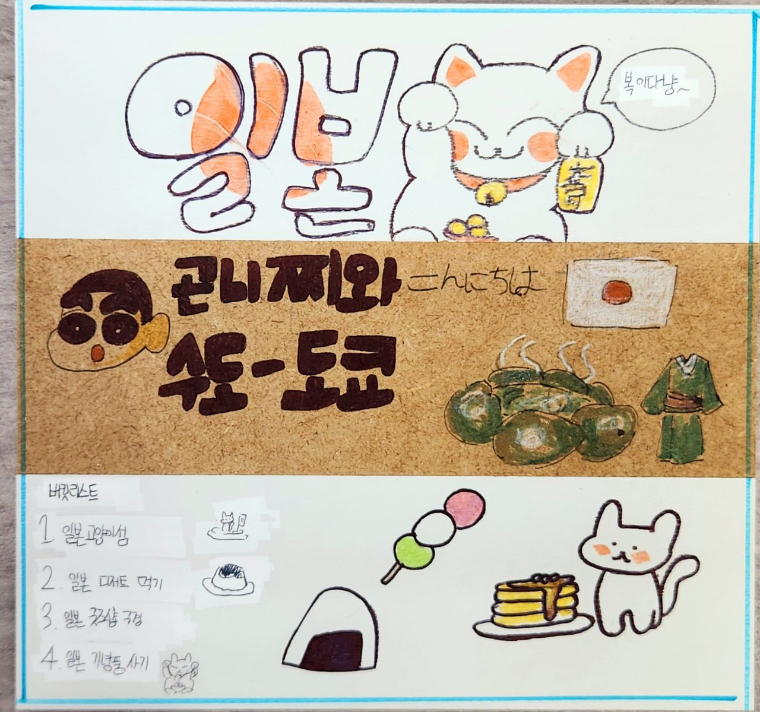 일본
복이다냥~
곤니찌와 こんにちは
수도-도쿄
버킷리스트
1 일본 고양이섬
2. 일본 디저트 먹기
3. 일본 굿즈샵 구경
4. 일본 기념품 사기